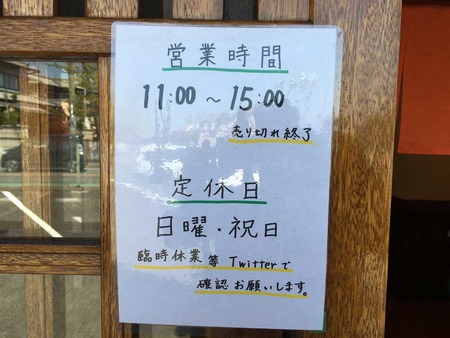 営業時間
11:00 〜 15:00
売り切れ終了
定休日
日曜・祝日
臨時休業等 Twitterで
確認お願いします。